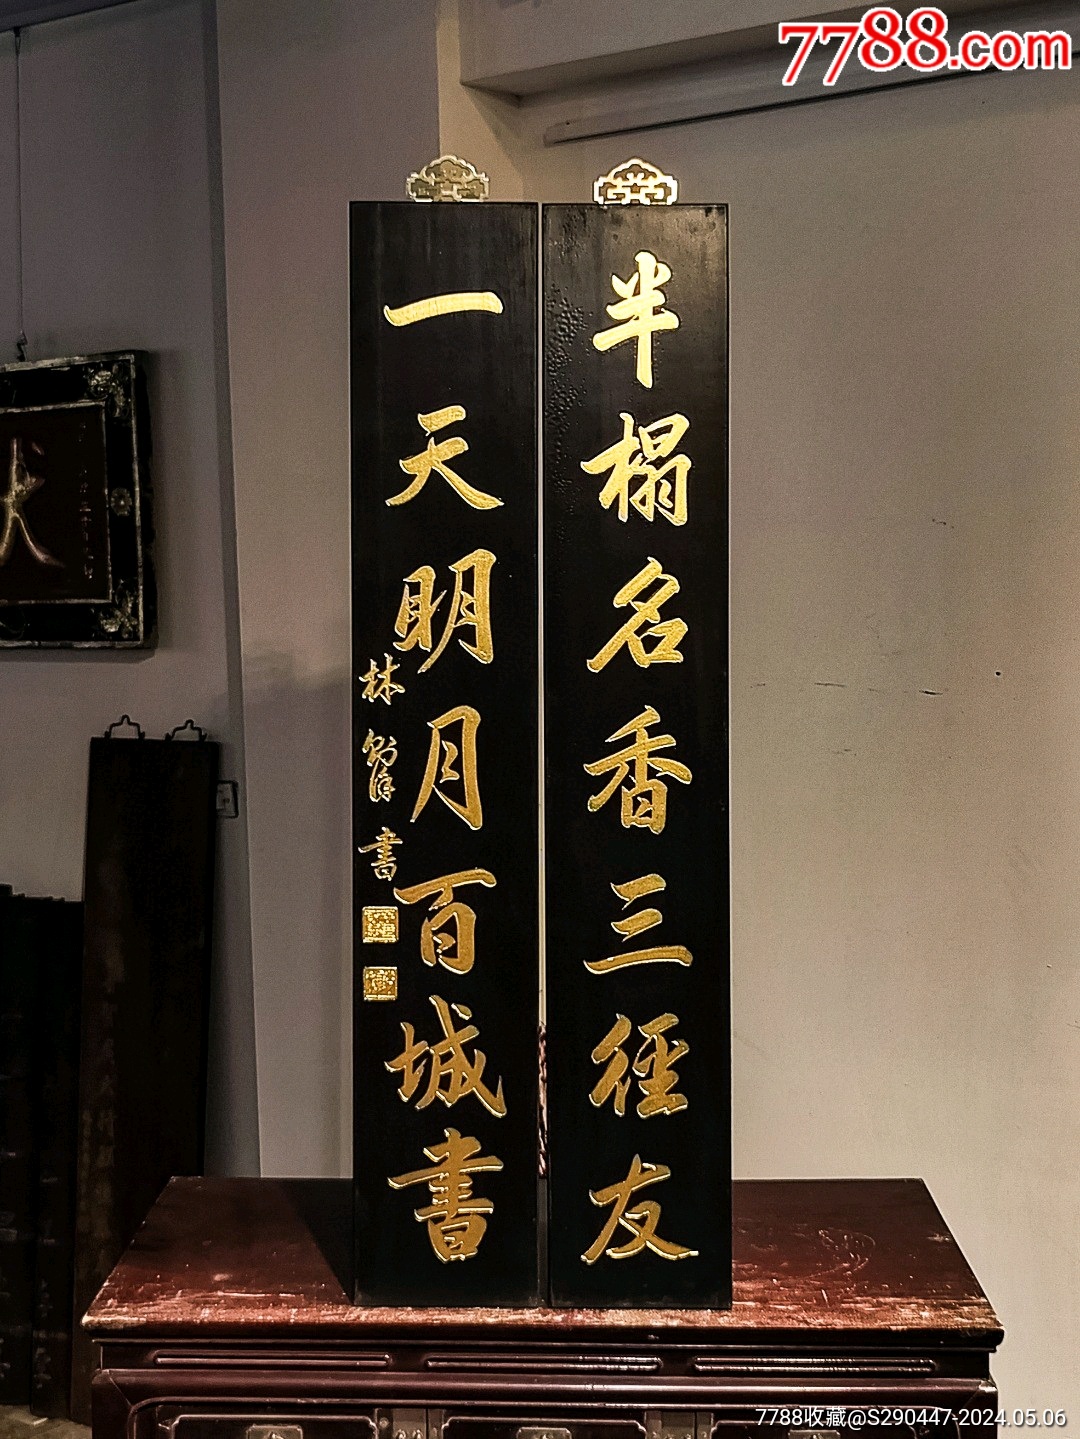 7788.com
半榻名香三徑友
一天明月百城書
林 書
7788收藏@S290447-2024.05.06